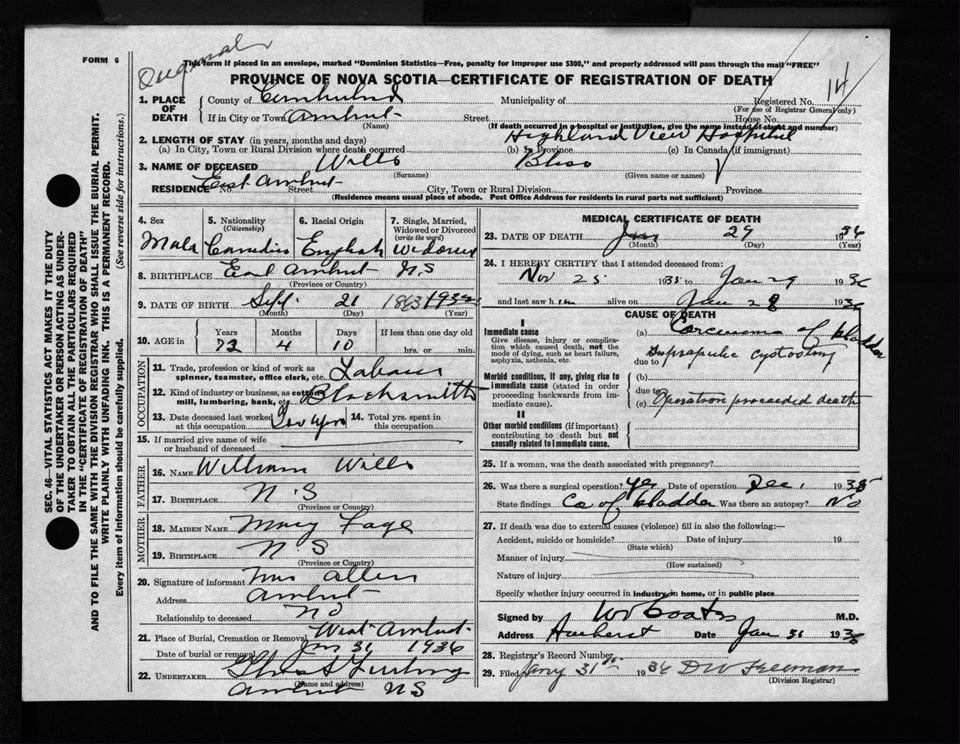 Original
FORM 6
This form if placed in an envelope, marked "Dominion Statistics—Free, penalty for improper use $300," and properly addressed will pass through the mail "FREE"
PROVINCE OF NOVA SCOTIA—CERTIFICATE OF REGISTRATION OF DEATH
14
1. PLACE OF DEATH
County of Cumberland Municipality of Registered No.
(For use of Registrar General only)
If in City or Town Amherst Street House No.
(Name) (If death occurred in a hospital or institution, give the name instead of street and number)
2. LENGTH OF STAY (in years, months and days) Highland View Hospital
(a) In City, Town or Rural Division where death occurred (b) in Province (c) In Canada (if immigrant)
3. NAME OF DECEASED Wills Bliss
(Surname) (Given name or names)
RESIDENCE No. East Amherst Street City, Town or Rural Division Province
(Residence means usual place of abode. Post Office Address for residents in rural parts not sufficient)
4. Sex
Male
5. Nationality
(Citizenship)
Canadian
6. Racial Origin
English
7. Single, Married, Widowed or Divorced
(write the word)
Widower
8. BIRTHPLACE East Amherst N.S
(Province or Country)
9. DATE OF BIRTH Sept. 21 1863
(Month) (Day) (Year)
10. AGE in
Years Months Days If less than one day old
72 4 10 hrs. or min.
OCCUPATION
11. Trade, profession or kind of work as
spinner, teamster, office clerk, etc. Labourer
12. Kind of industry or business, as cotton
mill, lumbering, bank, etc. Blacksmith
13. Date deceased last worked
at this occupation
14. Total yrs. spent in
this occupation
15. If married give name of wife
or husband of deceased
FATHER
16. NAME William Wills
17. BIRTHPLACE N.S
(Province or Country)
MOTHER
18. MAIDEN NAME Mary Fage
19. BIRTHPLACE N.S
(Province or Country)
20. Signature of informant Mrs Allen
Address Amherst
Relationship to deceased No
21. Place of Burial, Cremation or Removal West Amherst
Date of burial or removal Jan 31 1936
22. UNDERTAKER
(Name and address)
Amherst NS
MEDICAL CERTIFICATE OF DEATH
23. DATE OF DEATH Jan 29 1936
(Month) (Day) (Year)
24. I HEREBY CERTIFY that I attended deceased from:
Nov 25 1935 to Jan 29 1936
and last saw h im alive on Jan 28 1936
CAUSE OF DEATH
I
Immediate cause
Give disease, injury or complication which caused death, not the mode of dying, such as heart failure, asphyxia, asthenia, etc.
(a) Carcinoma of bladder
due to Suprapubic cystostomy
Morbid conditions, if any, giving rise to immediate cause (stated in order proceeding backwards from immediate cause).
(b)
due to
(c) Operation preceeded death
II
Other morbid conditions (if important) contributing to death but not causally related to immediate cause.
25. If a woman, was the death associated with pregnancy?
26. Was there a surgical operation? yes Date of operation Dec. 1935
State findings Ca of bladder Was there an autopsy? No
27. If death was due to external causes (violence) fill in also the following:—
Accident, suicide or homicide? Date of injury 19
(State which)
Manner of injury
(How sustained)
Nature of injury
Specify whether injury occurred in industry, in home, or in public place
Signed by W Coates M.D.
Address Amherst Date Jan 31 1936
28. Registrar's Record Number
29. Filed Jany 31st 1936 DW Freeman
(Division Registrar)
SEC. 46—VITAL STATISTICS ACT MAKES IT THE DUTY
OF THE UNDERTAKER OR PERSON ACTING AS UNDER-
TAKER TO OBTAIN ALL THE PARTICULARS REQUIRED
IN THE "CERTIFICATE OF REGISTRATION OF DEATH"
AND TO FILE THE SAME WITH THE DIVISION REGISTRAR WHO SHALL ISSUE THE BURIAL PERMIT.
WRITE PLAINLY WITH UNFADING INK. THIS IS A PERMANENT RECORD.
Every item of information should be carefully supplied. (See reverse side for instructions.)